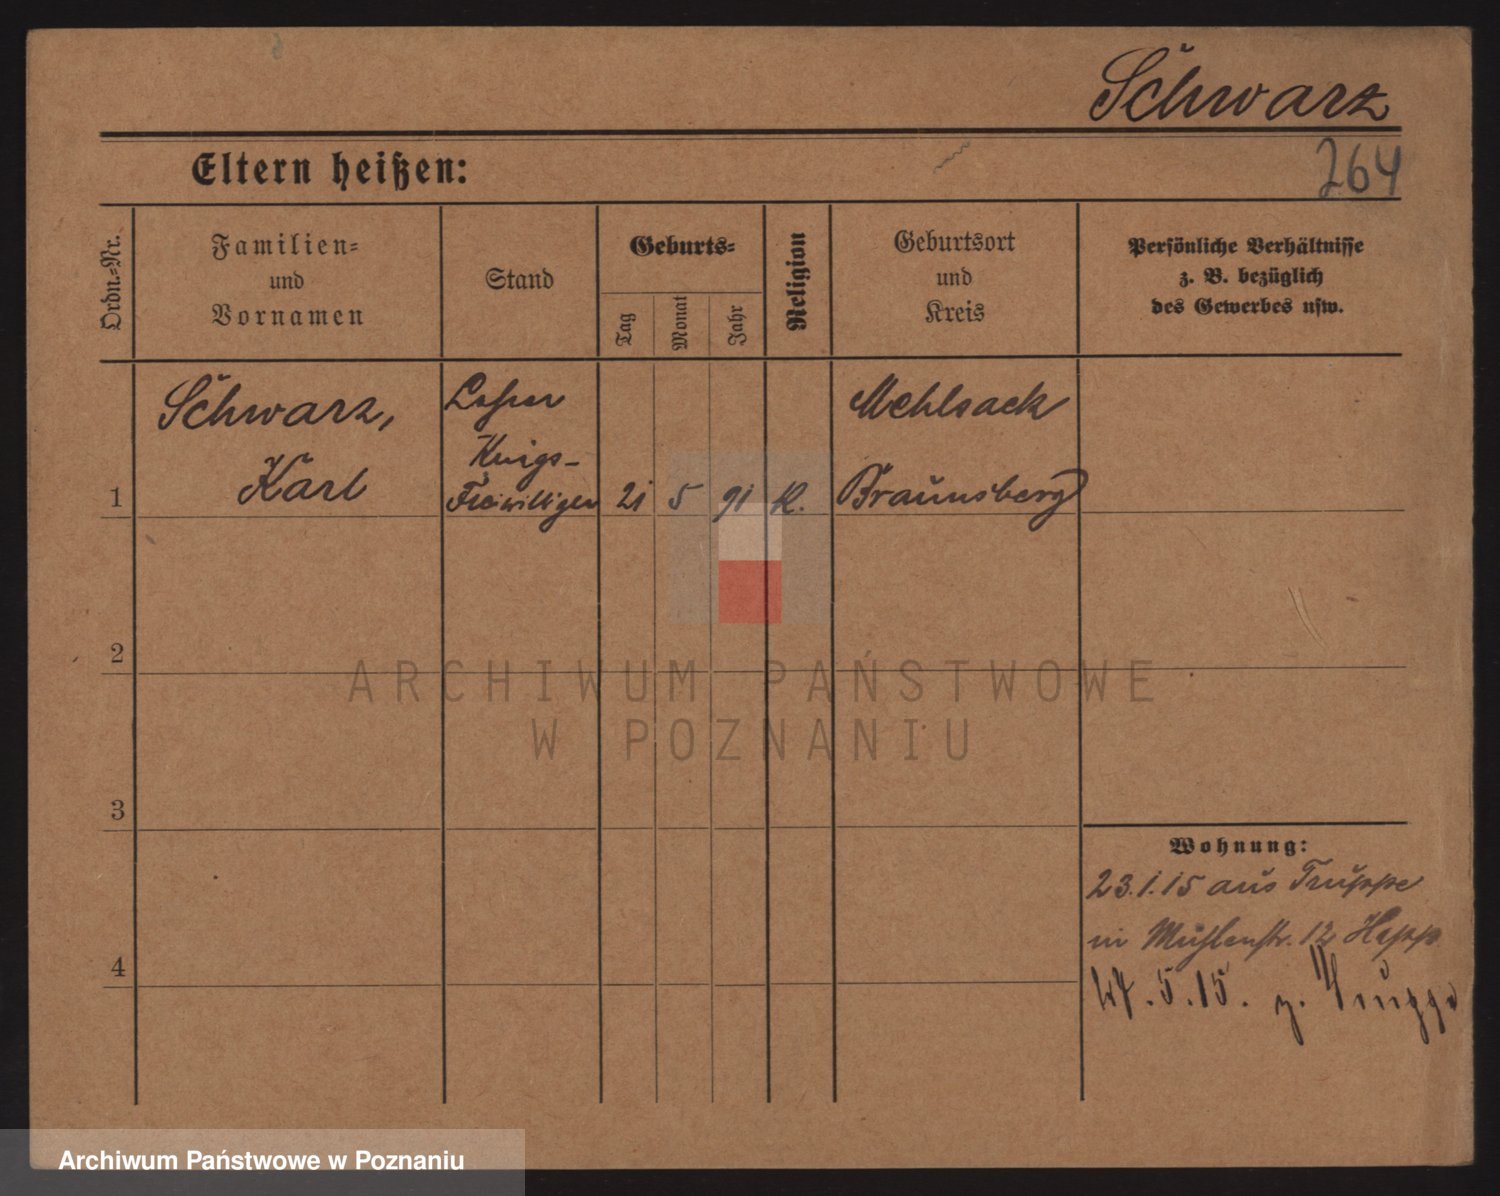 Schwarz
Eltern heißen:
264
Ordn.-Nr.
Familien-
und
Vornamen
Stand
Geburts-
Tag
Monat
Jahr
Religion
Geburtsort
und
Kreis
Persönliche Verhältnisse
z. B. bezüglich
des Gewerbes usw.
1
Schwarz,
Karl
Lehrer
Kriegs-
Freiwilliger
21
5
91
K.
Mehlsack
Braunsberg
2
3
4
Wohnung:
23.1.15 aus Truppe
in Mühlenstr. 12 Hepp
5.15. z. Truppe
ARCHIWUM PAŃSTWOWE
W POZNANIU
Archiwum Państwowe w Poznaniu